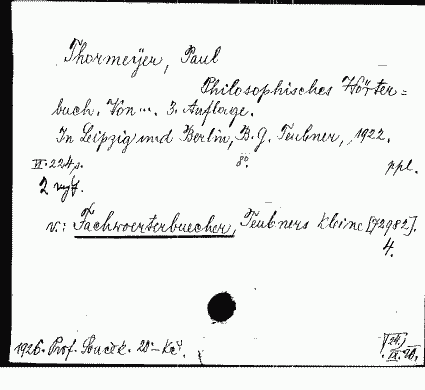 Thormeyer, Paul
Philosophisches Wörter=
buch. Von ... 3. Auflage.
In Leipzig und Berlin, B. G. Teubner, 1922.
VI. 224 p. 8°. ppl.
2 výt.
v.: Fachwoerterbuecher, Teubners kleine [72982].
4.
1926. Prof. Souček. 20 - Kč.
IX. 26.